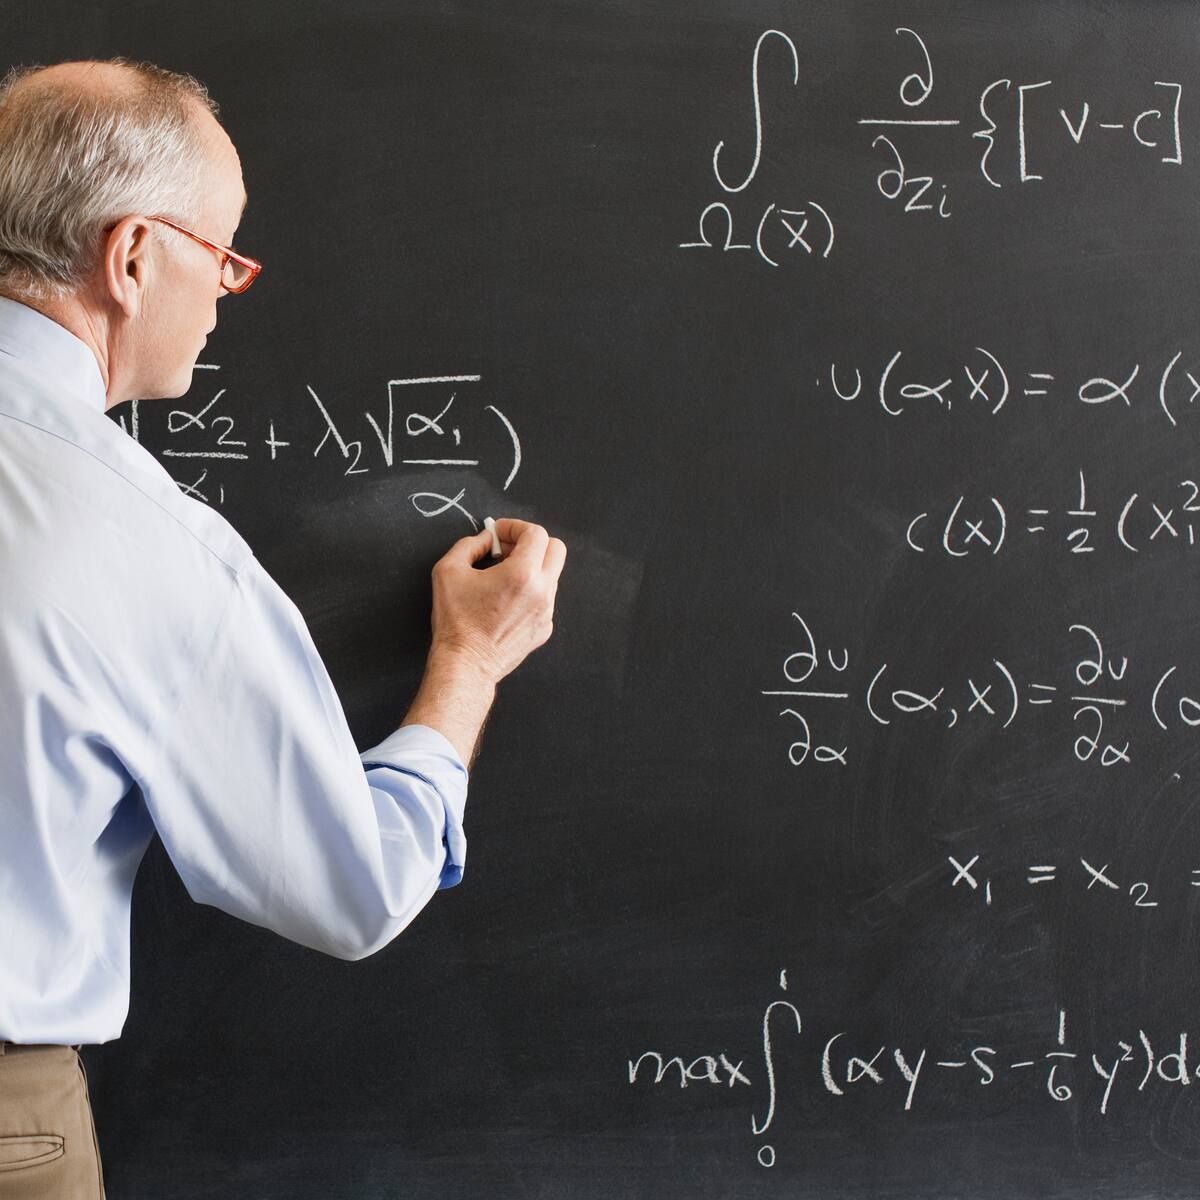 ∫_Ω(x̄) ∂/∂z_i {[v-c]
√(α_2/α_1) + λ_2 √(α_1/α
)
u(α,x) = α(x
c(x) = 1/2 (x_1^2
∂u/∂α (α,x) = ∂u/∂α (α
x_1 = x_2 =
max ∫_0^1 (αy-s-1/6 y^2)dα